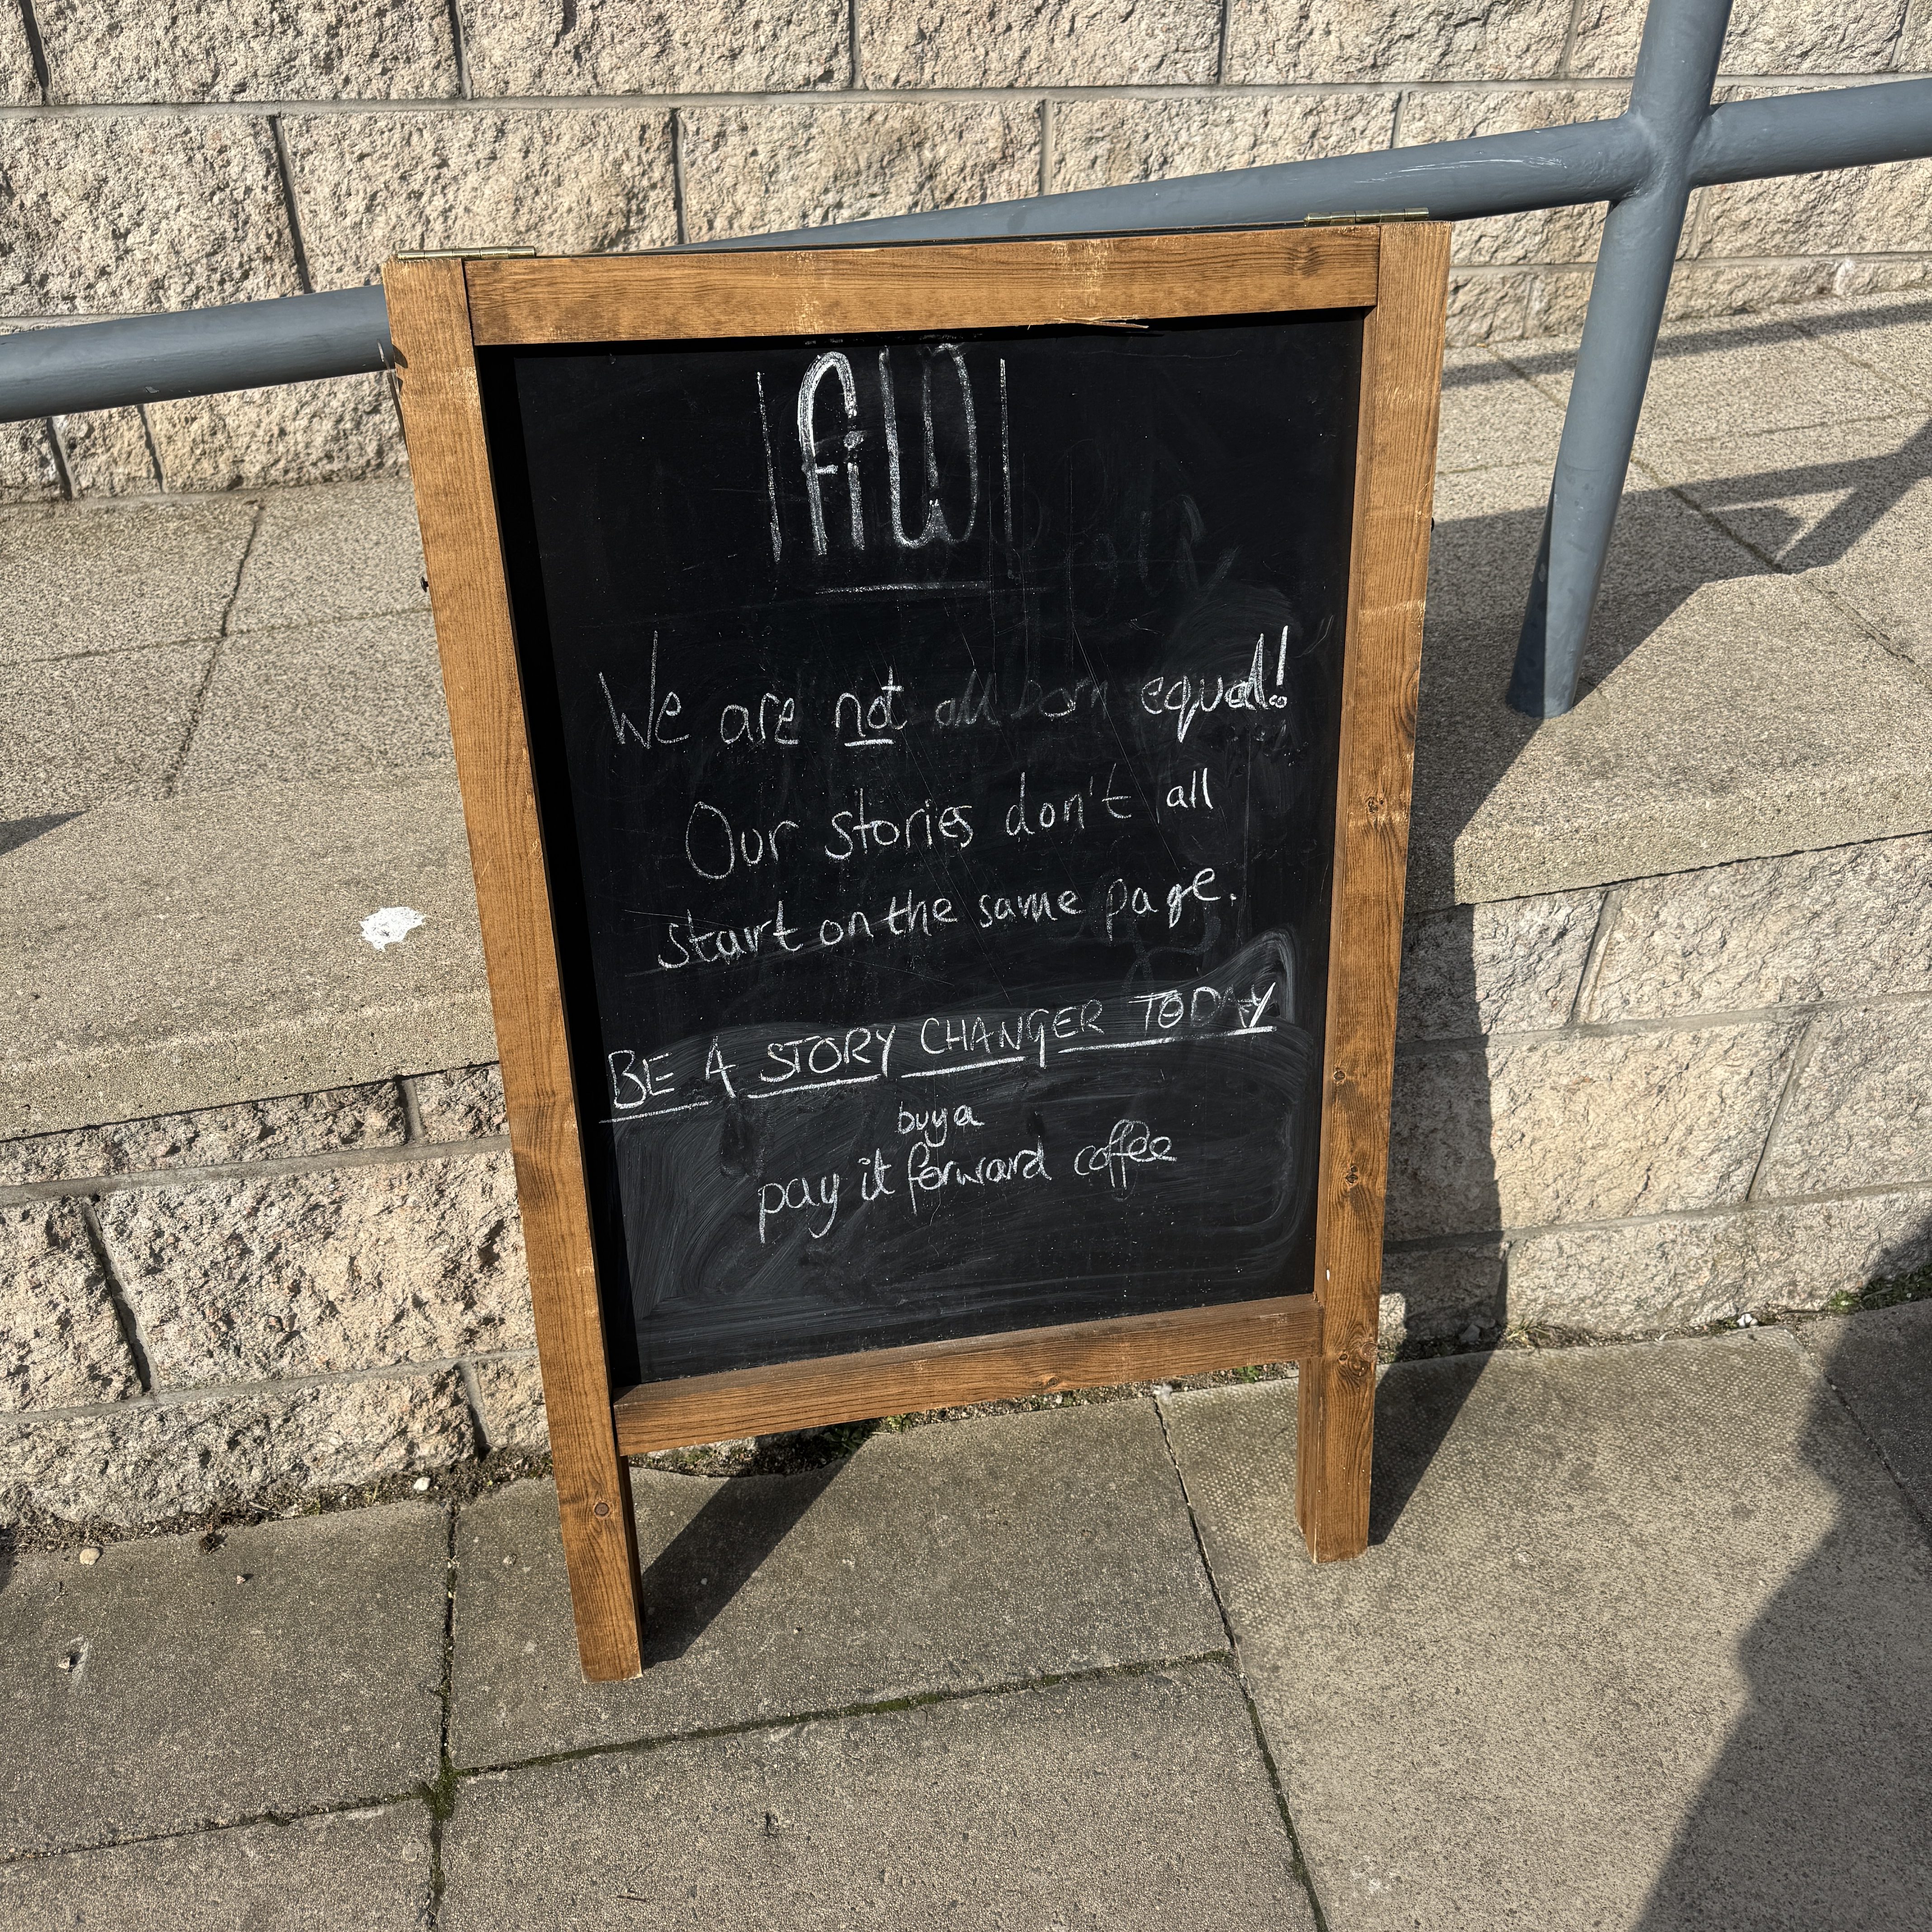 FiW
We are not all born equal!
Our stories don't all
start on the same page.
BE A STORY CHANGER TODAY
buy a
pay it forward coffee